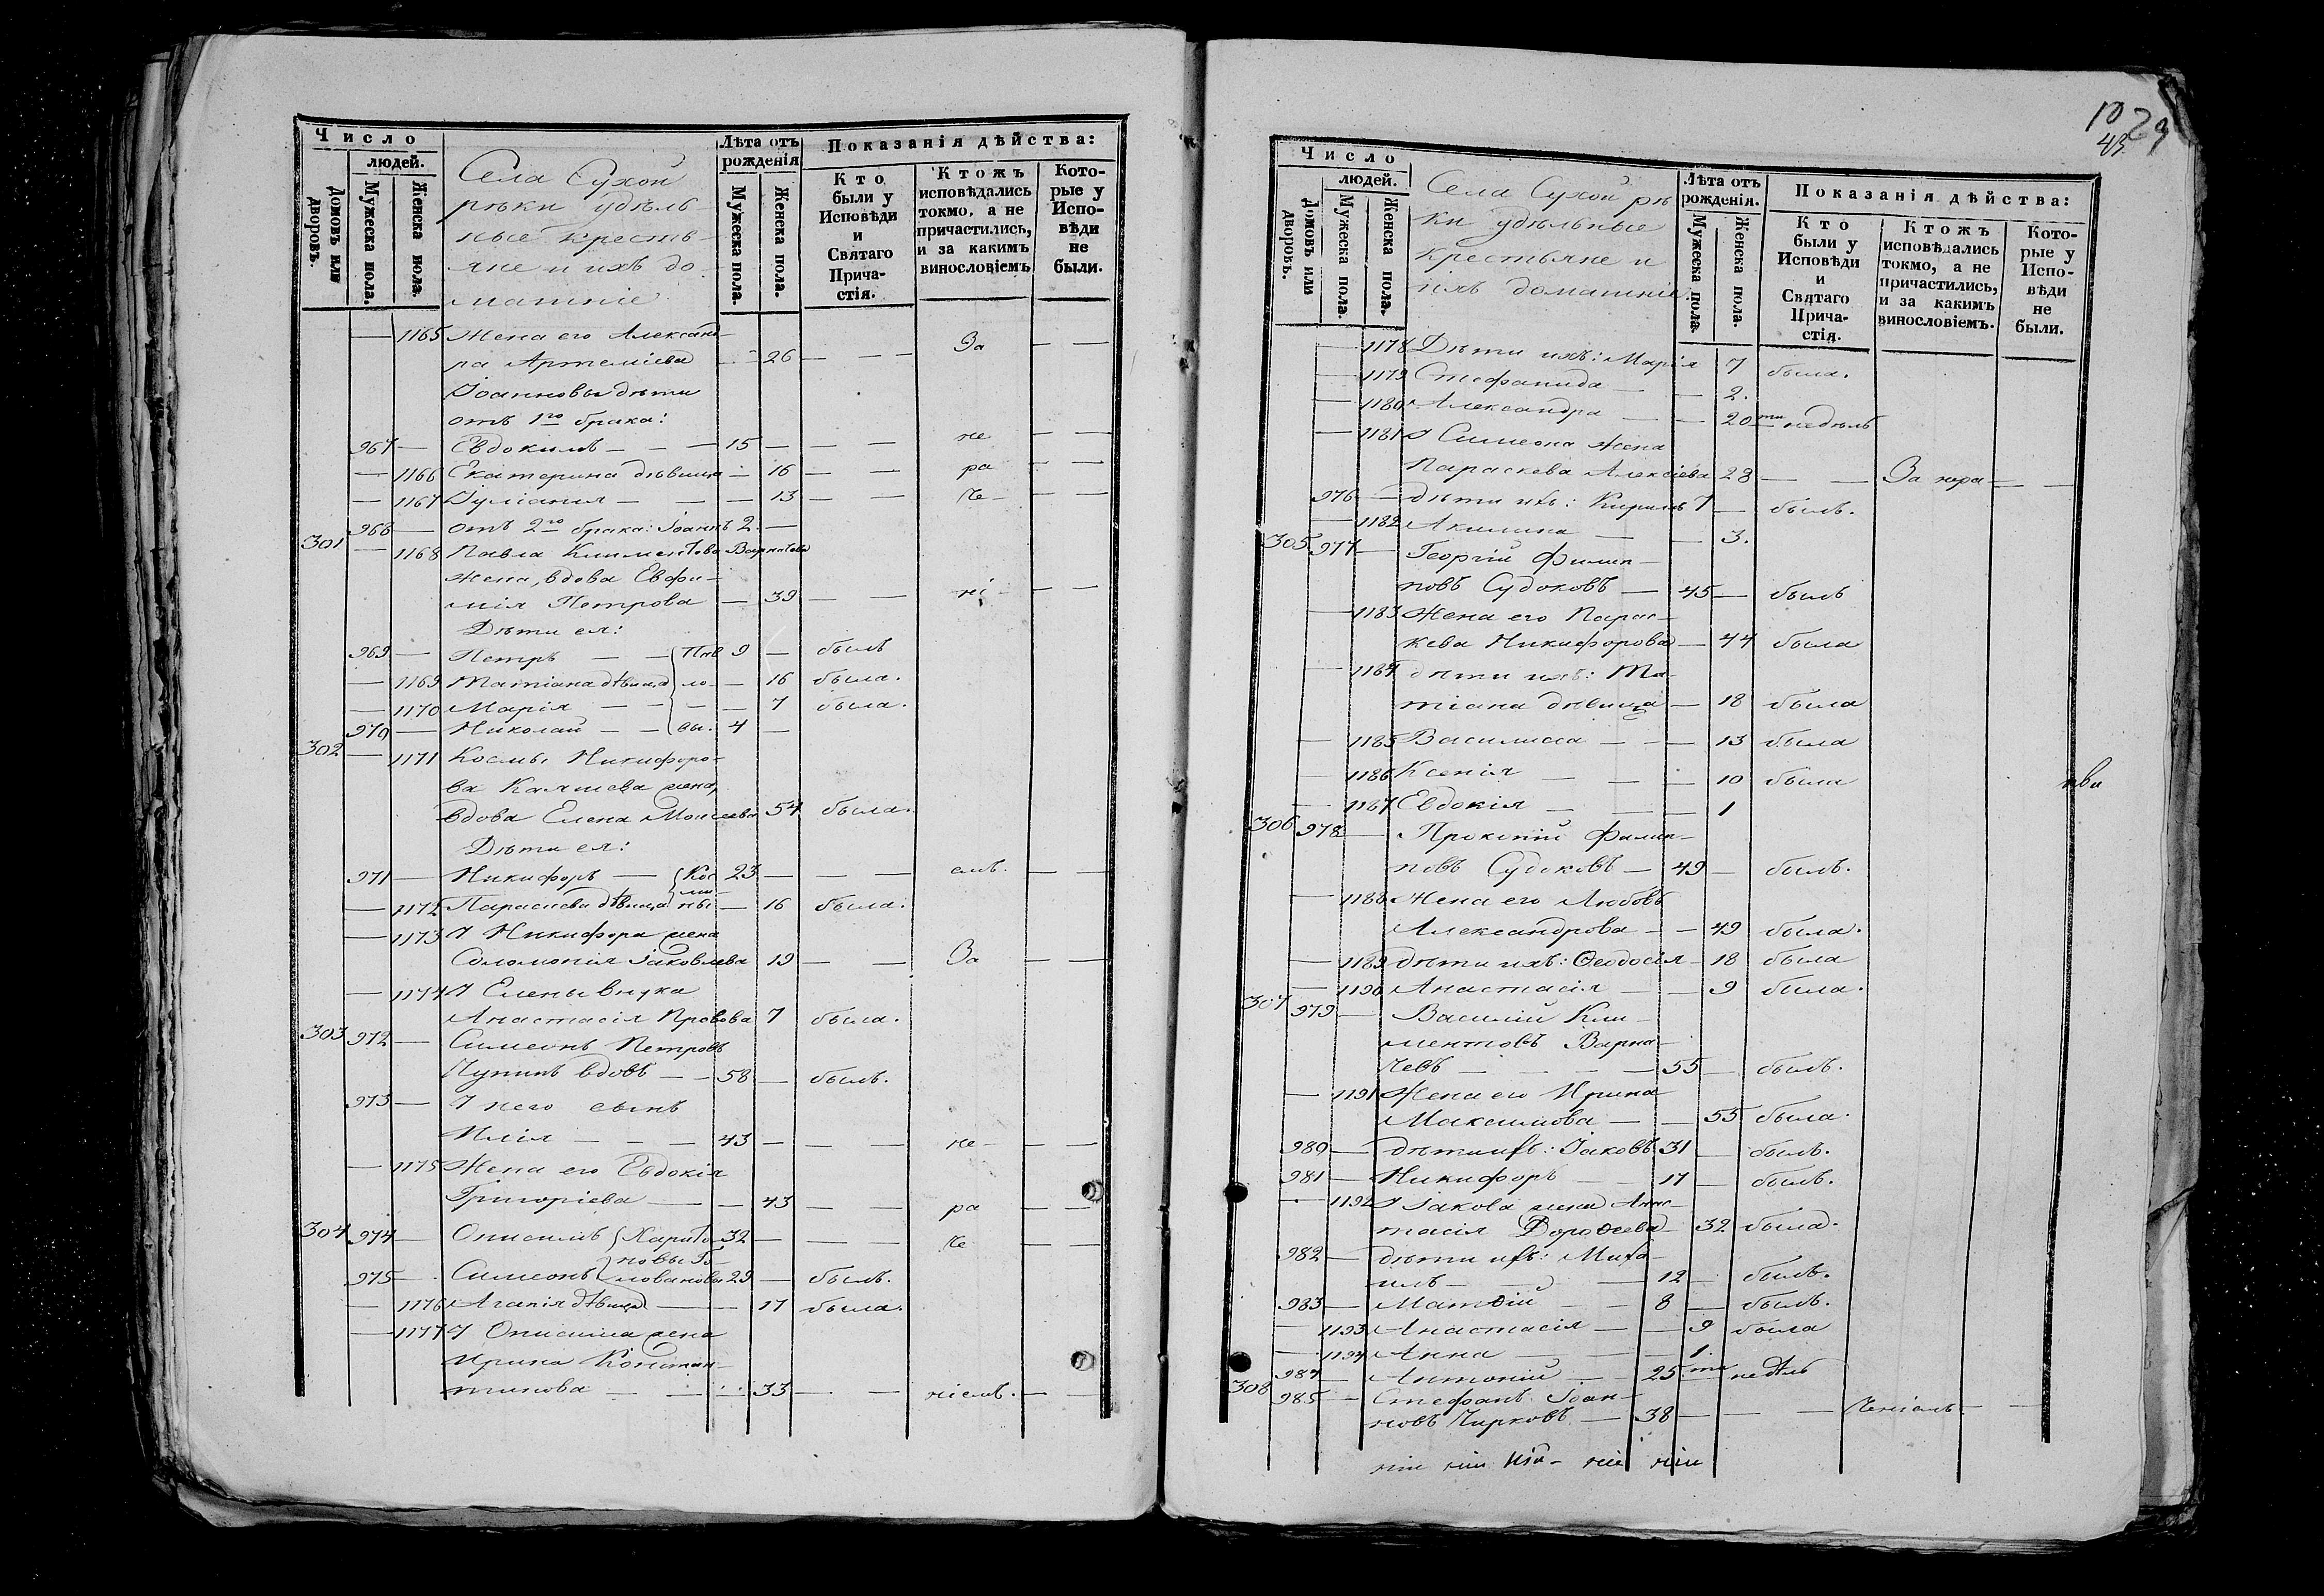 Число
людей.
Домовъ или дворовъ.
Мужеска пола.
Женска пола.
Села Сухой
рѣки удѣль-
ные кресть-
яне и ихъ до-
машніе
Лѣта отъ
рожденія
Мужеска пола.
Женска пола.
Показанія дѣйства:
Кто
были у
Исповѣди
и
Святаго
Прича-
стія.
Ктожъ
исповѣдались
токмо, а не
причастились,
и за какимъ
винословіемъ
Кото-
рые у
Испо-
вѣди
не
были.
— 1165 Жена его Александ-
ра Артеміева — 26 — — — За — —
Іоанновы дѣти
отъ 1го брака:
967 — Евдокимъ — — 15 — — — не — —
— 1166 Екатерина дѣвица — 16 — — ра — —
— 1167 Іуліанія — — — 13 — — че- — —
968 — отъ 2го брака: Іоаннъ 2. —
301 — 1168 Павла Климентова Варначева
жена, вдова Евфи-
мія Петрова — 39 — — ні- — —
Дѣти ея:
969 — Петръ — — Пав 9 — былъ
— 1169 Татіана дѣвица ло- — 16 была.
— 1170 Марія — — — — 7 была.
970 — Николай — — вы. 4 —
302 — 1171 Космы Никифоро-
ва жена,
вдова Елена Моисеева 54 была.
Дѣти ея:
971 — Никифоръ — Кос 23 — — — емъ. — —
— 1172 Параскева дѣвица мины — 16 была.
— 1173 У Никифора жена
Соломонія Іаковлева 19 — — За — —
— 1174 У Елены внука
Анастасія Провова 7 была.
303 972 — Симеонъ Петровъ
Чупинъ вдовъ — — 58 — былъ.
973 — У него сынъ
Илія — — — 43 — — — не- — —
— 1175 Жена его Евдокія
Григоріева — — 43 — — ра — —
304 974 — Онисимъ Харито- 32 — — — че — —
новы Го-
975 — Симеонъ ловановы 29 — былъ.
— 1176 Агапія дѣвица — — 17 была.
— 1177 У Онисима жена
Ирина Констан-
тинова — — — 33 — — ніемъ. — —
10 29
43
Число
людей.
Домовъ или дворовъ.
Мужеска пола.
Женска пола.
Села Сухой рѣ
ки удѣльные
крестьяне и
ихъ домашніе
Лѣта отъ
рожденія.
Мужеска пола.
Женска пола.
Показанія дѣйства:
Кто
были у
Исповѣди
и
Святаго
Прича-
стія.
Ктожъ
исповѣдались
токмо, а не
причастились,
и за какимъ
винословіемъ.
Кото-
рые у
Испо-
вѣди
не
были.
— 1178 Дѣти ихъ: Марія 7 была.
— 1179 Стефанида — — 2.
— 1180 Александра — — 20ти недѣль
— 1181 У Симеона жена
Параскева Алексіева 28 — — За нера- — —
976 — дѣти ихъ: Кирилъ 7 — былъ.
— 1182 Акилина — — 3.
305 977 — Георгій Филип-
повъ Судоковъ — 45 — былъ
— 1183 Жена его Парас-
кева Никифорова — 44 была
— 1184 дѣти ихъ: Та-
тіана дѣвица — 18 была
— 1185 Василисса — — — 13 была
— 1186 Ксенія — — — 10 была
— 1187 Евдокія — — — 1
306 978 — Прокопій Филип-
повъ Судоковъ — 49 — былъ.
— 1188 Жена его Любовь
Александрова — — 49 была.
— 1189 дѣти ихъ: Ѳеодосія — 18 была
— 1190 Анастасія — — 9 была.
307 979 — Василій Кли-
ментовъ Варна-
чевъ — — — — 55 — былъ.
— 1191 Жена его Ирина
Максимова — — 55 была.
980 — дѣти ихъ: Іаковъ 31 — былъ.
981 — Никифоръ — — 17 — былъ.
— 1192 У Іакова жена Анас-
тасія Дороѳеева — 32 была.
982 — дѣти ихъ: Миха-
илъ — — — 12 — былъ.
983 — Матѳій — — 8 — былъ.
— 1193 Анастасія — — 9 была
— 1194 Анна — — — 1.
984 — Антоній — — 25ти недѣль
308 985 — Стефанъ Іоан-
новъ Чирковъ — 38 — — — ченіемъ — —